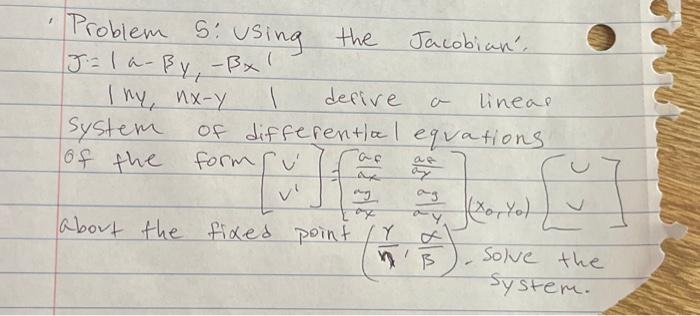 Problem 5: using the Jacobian:
J = | a - βy, -βx |
| ny, nx-y | derive a linear
system of differential equations
of the form [u' v'] = [∂f/∂x ∂f/∂y ∂g/∂x ∂g/∂y] (x0, y0) [u v]
about the fixed point (γ/η, α/β). Solve the
system.